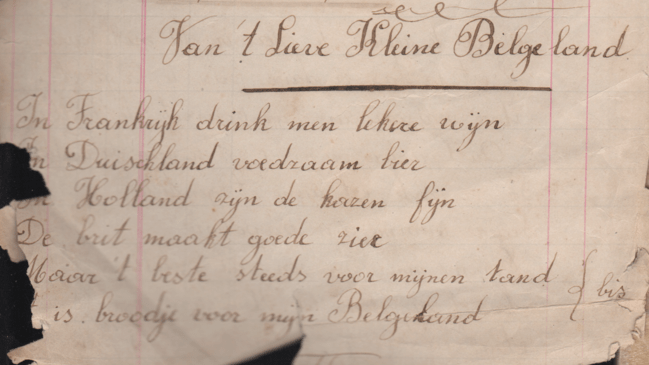 Van 't Lieve Kleine Belgeland
In Frankrijk drink men lekere wijn
In Duischland voedzaam bier
In Holland zijn de kazen fijn
De brit maakt goede
Maar 't beste steeds voor mijnen tand
is broodje voor mijn Belgeland
bis